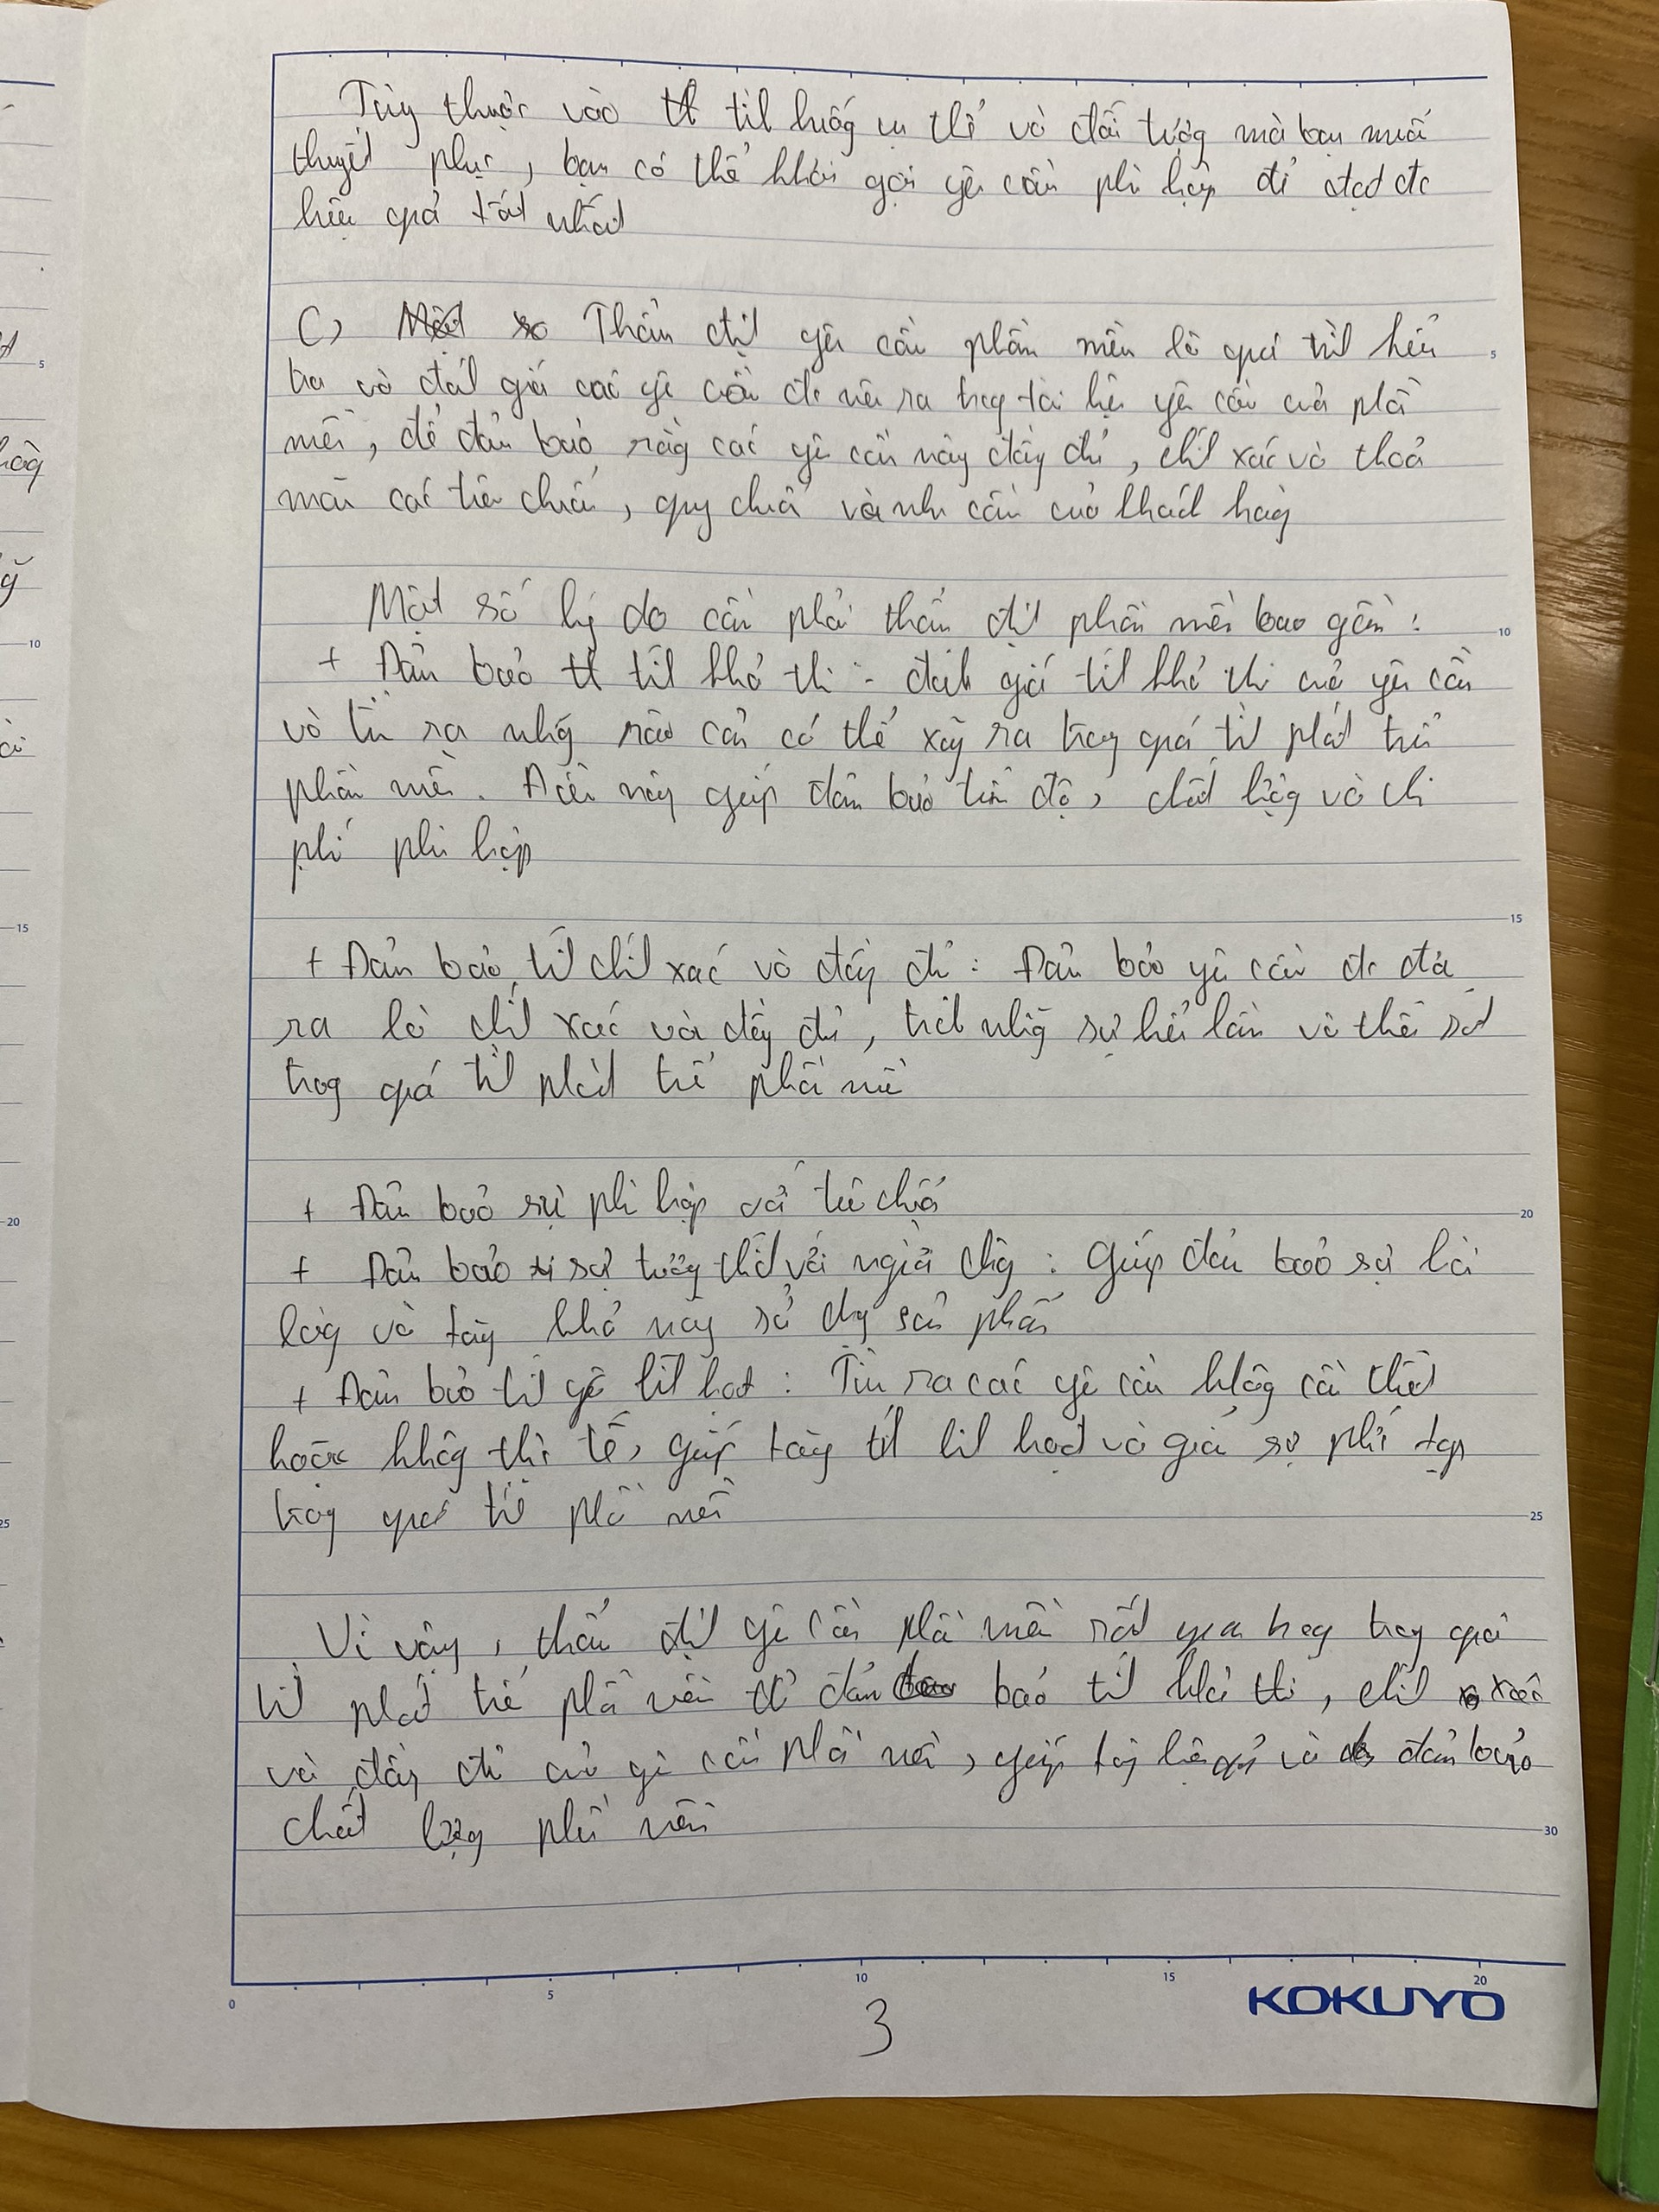 Tùy thuộc vào tình huống cụ thể và đối tượng mà bạn muốn
thuyết phục, bạn có thể khơi gợi yêu cầu phù hợp để đạt đc
hiệu quả tốt nhất
C) Thẩm định yêu cầu phần mềm là quá trình kiểm
tra và đánh giá các yêu cầu đc nêu ra trong tài liệu yêu cầu của phần
mềm, để đảm bảo rằng các yêu cầu này đầy đủ, chính xác và thoả
mãn các tiêu chuẩn, quy chuẩn và nhu cầu của khách hàng
Một số lý do cần phải thẩm định phần mềm bao gồm:
+ Đảm bảo tính khả thi: đánh giá tính khả thi của yêu cầu
và tìm ra những rào cản có thể xảy ra trong quá trình phát triển
phần mềm. Điều này giúp đảm bảo tiến độ, chất lượng và chi
phí phù hợp
+ Đảm bảo tính chính xác và đầy đủ: Đảm bảo yêu cầu đc đưa
ra là chính xác và đầy đủ, tránh những sự hiểu lầm và thiếu sót
trong quá trình phát triển phần mềm
+ Đảm bảo sự phù hợp với tiêu chuẩn
+ Đảm bảo sự tương thích với người dùng: Giúp đảm bảo sự hài
lòng và tăng khả năng sử dụng sản phẩm
+ Đảm bảo tính linh hoạt: Tìm ra các yêu cầu không cần thiết
hoặc không thực tế, giúp tăng tính linh hoạt và giảm sự phức tạp
trong quá trình phần mềm
Vì vậy, thẩm định yêu cầu phần mềm rất quan trọng trong quá
trình phát triển phần mềm để đảm bảo tính khả thi, chính xác
và đầy đủ của yêu cầu phần mềm, giúp tăng hiệu quả và đảm bảo
chất lượng phần mềm
5
10
15
20
25
30
0
5
10
15
20
KOKUYO
3